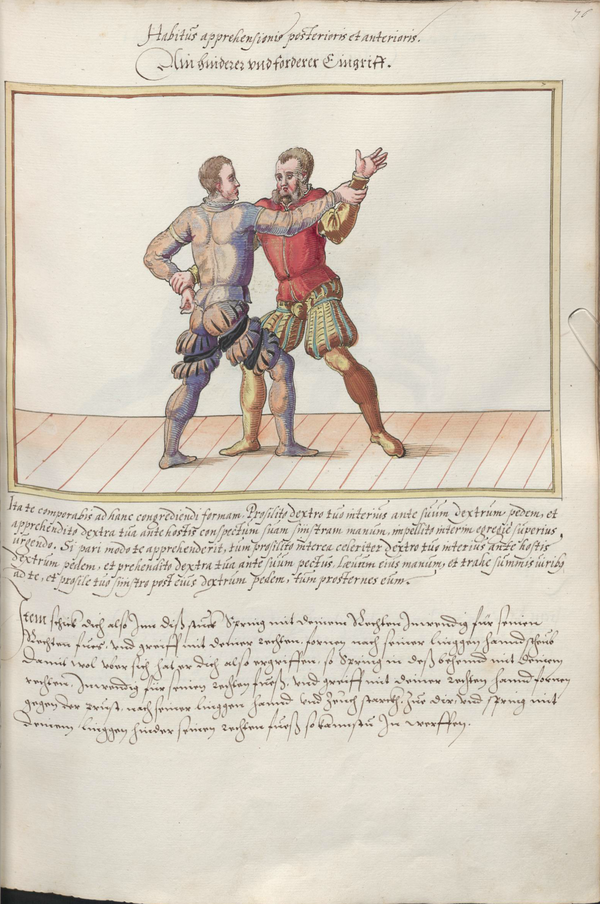 76
Habitus apprehensionis posterioris et anterioris.
Ain hinderer und forderer Eingriff.
Ita te comparabis ad hanc congrediendi formam. Prosilito dextro tuo interius ante suum dextrum pedem, et
apprehendito dextra tua ante hostis conspectum suam sinistram manum, impellito interim egregie superius
urgendo. Si pari modo te apprehenderit, tum prosilito interea celeriter dextro tuo interius ante hostis
dextrum pedem, et prehendito dextra tua ante suum pectus, laevam eius manum, et trahe summis viribus
ad te, et prosile tuo sinistro post eius dextrum pedem, tum prosternes eum.
Item schick dich also Inn diß stuck Spring mit deinem Rechten Inwendig für seinen
Rechten fues, und greiff mit deiner rechten, fornen nach seiner linggen hannd schub
damit wol uber sich hat er dich also ergriffen, so Spring in deß behend mit deinem
rechten, Inwendig für seinen rechten fueß, und greiff mit deiner rechten hannd fornen
gegen der prust, nach seiner linggen hannd und zeuch starckh zue dir, und spring mit
deinem linggen hinder seinen rechten fueß so kannstu In werffen.